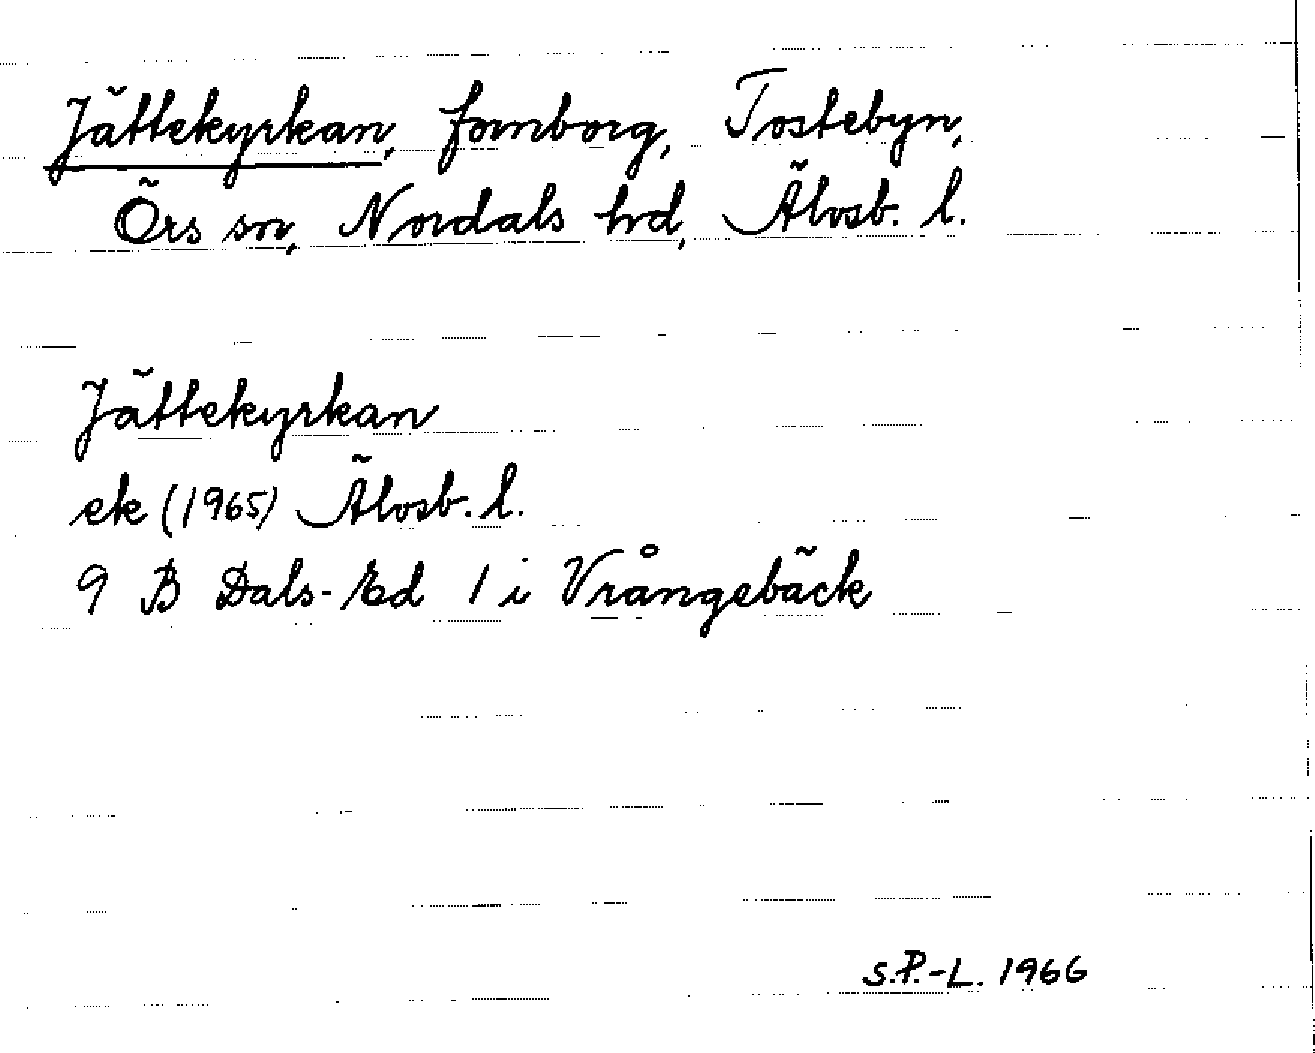 Jättekyrkan, fornborg, Tostebyn,
Örs sn, Nordals hd, Älvsb. l.
Jättekyrkan
ek (1965) Älvsb. l.
9 B Dals-Ed 1 i Vrångebäck
S.P.-L. 1966